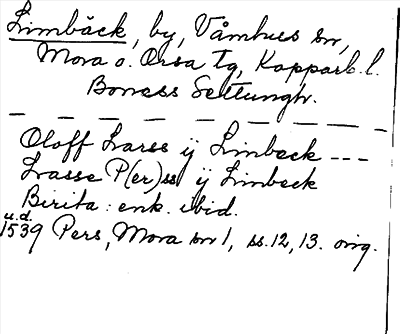 Limbäck, by, Våmhus sn,
Mora o. Orsa tg, Kopparb. l.
Boness Settungh.
Oloff Larss ij Limbeck ---
Lasse P(er)ss ij Limbeck
Birita : enk. ibid.
u.d.
1539 Pers, Mora sn 1, ss. 12, 13. orig.